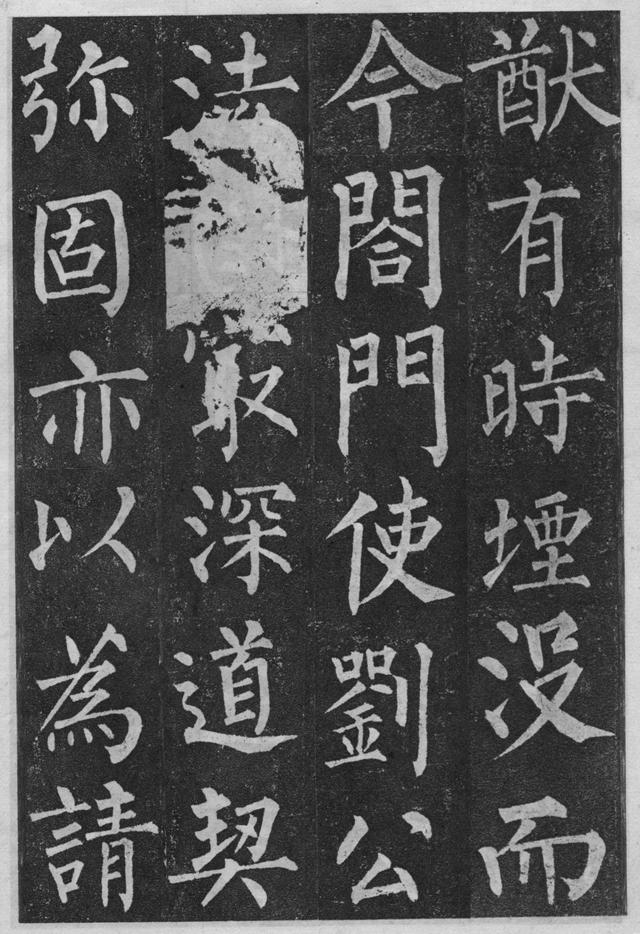 猷有時堙没而
今閤門使劉公
法㝡深道契
弥固亦以為請